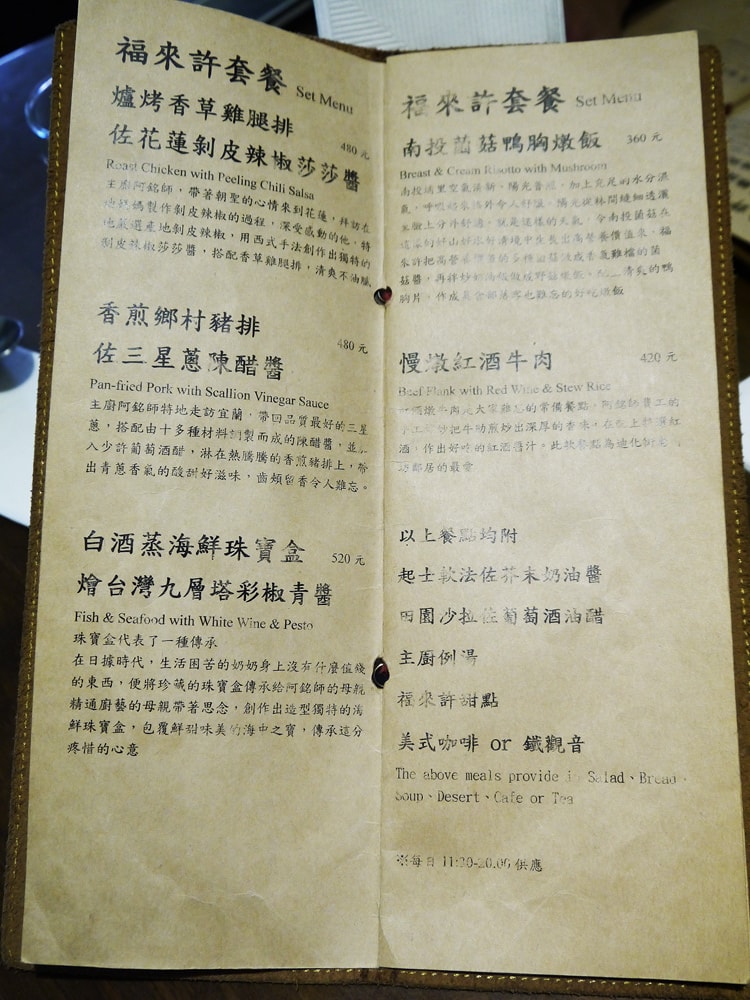 福來許套餐 Set Menu
爐烤香草雞腿排
佐花蓮剝皮辣椒莎莎醬 480 元
Roast Chicken with Peeling Chili Salsa
主廚阿銘師，帶著朝聖的心情來到花蓮，拜訪在
地媽媽製作剝皮辣椒的過程，深受感動的他，特
地嚴選產地剝皮辣椒，用西式手法創作出獨特的
剝皮辣椒莎莎醬，搭配香草雞腿排，清爽不油膩
香煎鄉村豬排
佐三星蔥陳醋醬 480 元
Pan-fried Pork with Scallion Vinegar Sauce
主廚阿銘師特地走訪宜蘭，帶回品質最好的三星
蔥，搭配由十多種材料調製而成的陳醋醬，並加
入少許葡萄酒醋，淋在熱騰騰的香煎豬排上，帶
出青蔥香氣的酸甜好滋味，齒頰留香令人難忘。
白酒蒸海鮮珠寶盒 520 元
燴台灣九層塔彩椒青醬
Fish & Seafood with White Wine & Pesto
珠寶盒代表了一種傳承
在日據時代，生活困苦的奶奶身上沒有什麼值錢
的東西，便將珍藏的珠寶盒傳承給阿銘師的母親
精通廚藝的母親帶著思念，創作出造型獨特的海
鮮珠寶盒，包覆鮮甜味美的海中之寶，傳承這分
疼惜的心意
福來許套餐 Set Menu
南投菌菇鴨胸燉飯 360 元
Breast & Cream Risotto with Mushroom
南投埔里空氣清新、陽光普照，加上充足的水分濕
氣，呼吸起來格外令人舒服，陽光從林間縫細透灑
在臉上分外舒適，就是這樣的天氣，令南投菌菇在
這
菇醬，再拌炒
胸片，作成
慢燉紅酒牛肉 420 元
Beef Flank with Red Wine & Stew Rice
紅酒燉牛肉是大家難忘的常備餐點，阿銘師費工的
把牛肋煎炒出深厚的香味，在
酒，作出好吃的紅酒醬汁。此款餐點為迪化街
坊鄰居的最愛
以上餐點均附
起士軟法佐芥末奶油醬
田園沙拉佐葡萄酒油醋
主廚例湯
福來許甜點
美式咖啡 or 鐵觀音
The above meals provide in Salad、Bread、
Soup、Desert、Cafe or Tea
※每日 11:30-20.00 供應